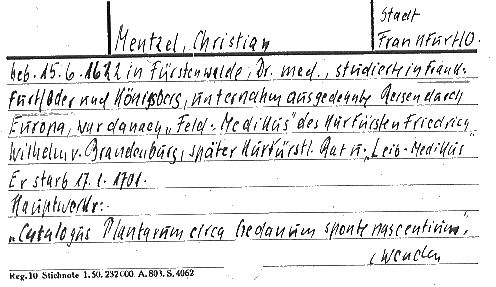 Stadt
Mentzel, Christian
Frankfurt/O.
geb. 15.6.1622 in Fürstenwalde, Dr. med., studierte in Frank-
furt/Oder und Königsberg, unternahm ausgedehnte Reisen durch
Europa, wurde danach „Feld-Medikus" des Kurfürsten Friedrich
Wilhelm v. Brandenburg, später Kurfürstl. Rat u. „Leib-Medikus
Er starb 17.1.1701.
Hauptwerk:
„Catalogus Plantarum circa Gedanum sponte nascentium",
Reg. 10 Stichnote 1. 50. 232000. A. 803. S. 4062